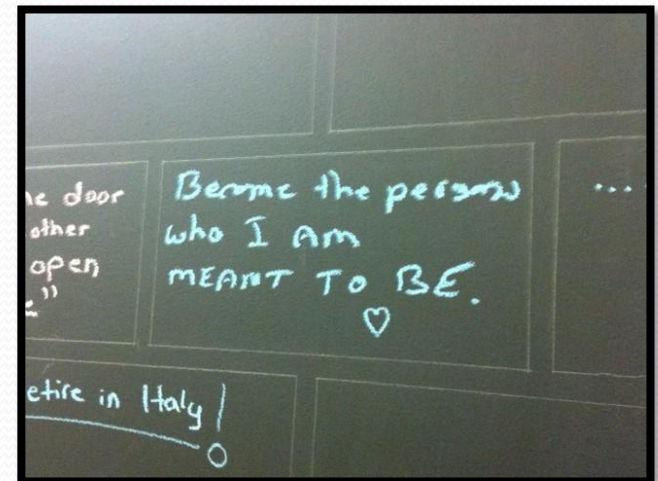 he door
other
open
"
Become the person
who I Am
MEANT TO BE.
...
etire in Italy!